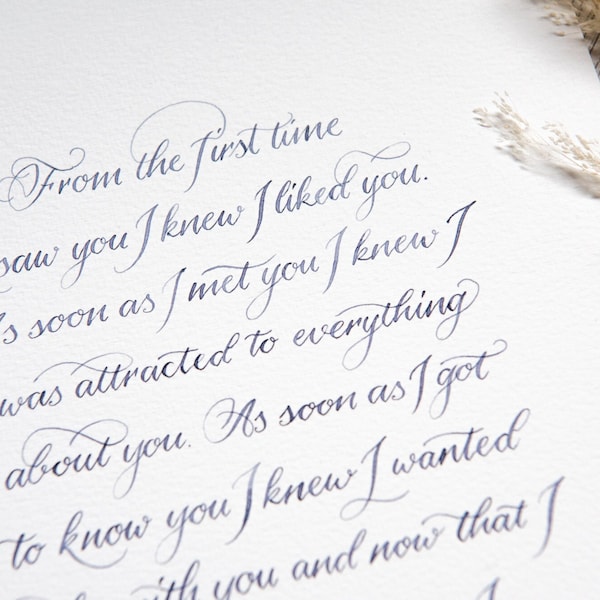 From the first time
saw you I knew I liked you.
soon as I met you I knew I
was attracted to everything
about you. As soon as I got
to know you I knew I wanted
with you and now that I